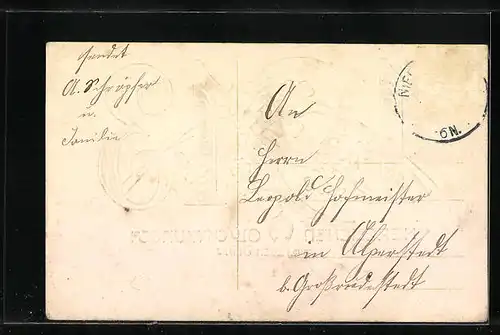 sendet
A. Schröpfer
u.
Familie
An
Herrn
Leopold Hofmeister
in Alperstedt
b. Großrudestedt